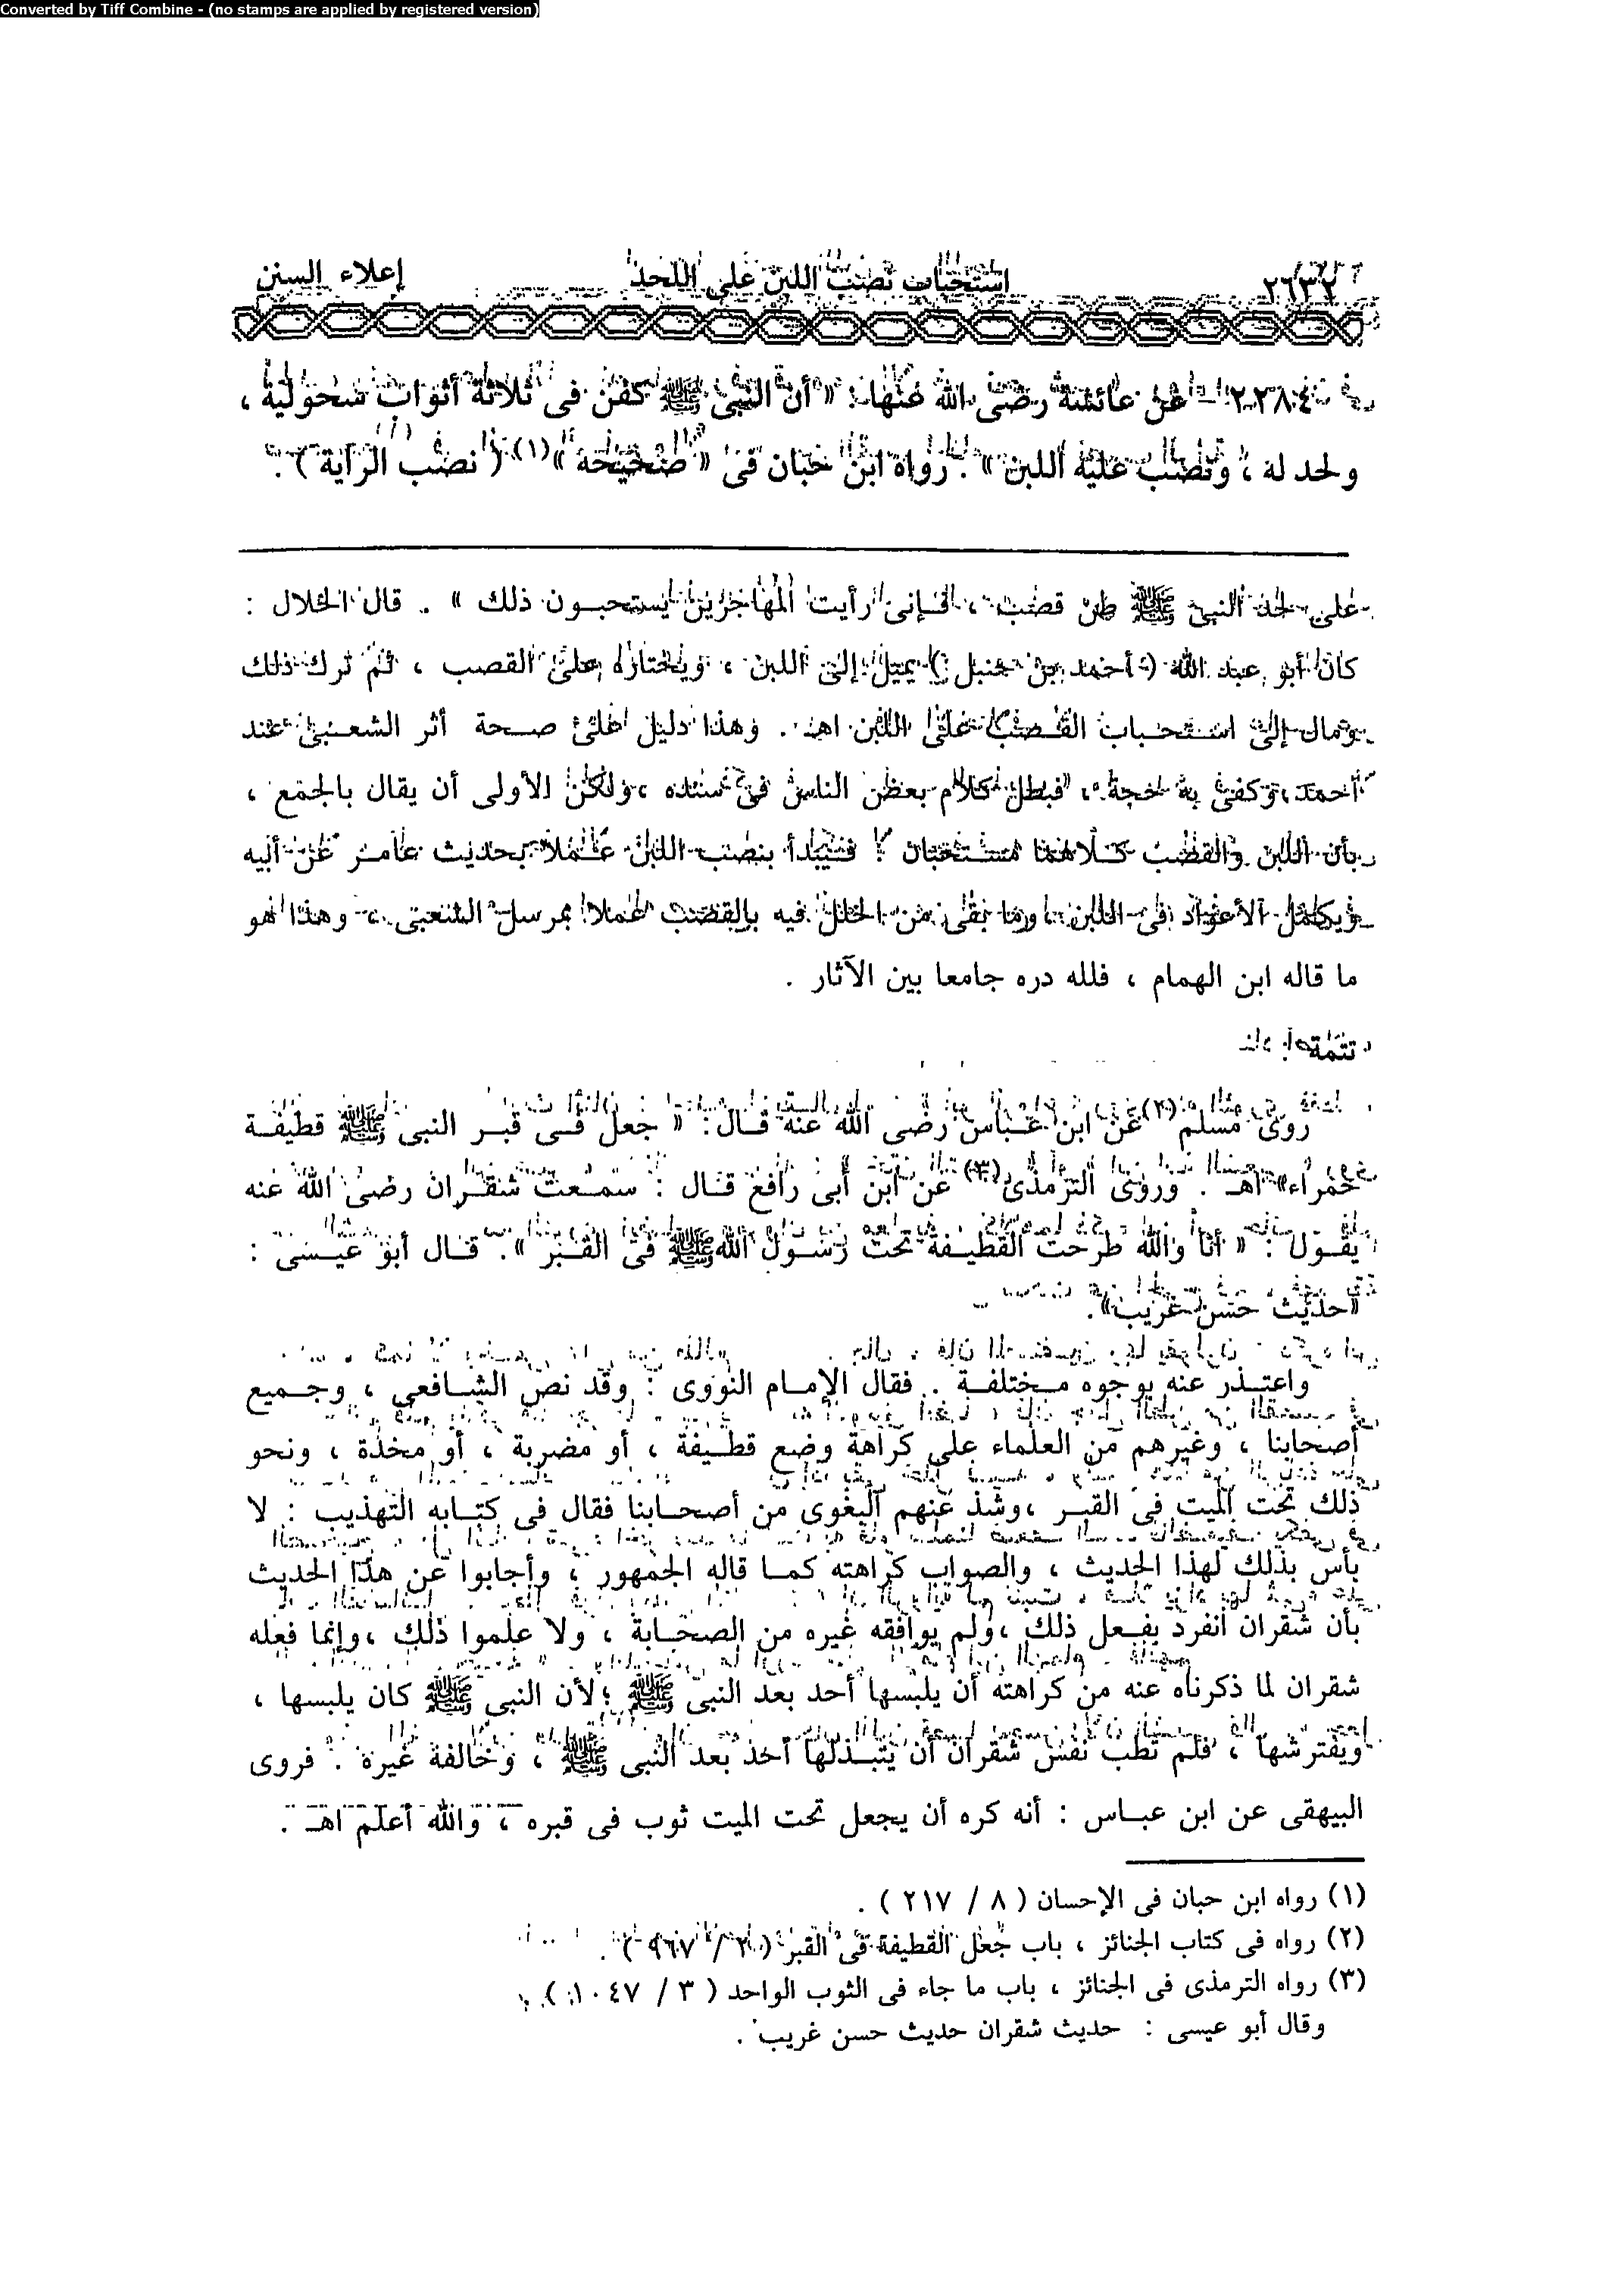 Converted by Tiff Combine - (no stamps are applied by registered version)
٢٦٣٢ استحباب نصب اللبن على اللحد إعلاء السنن
٢٢٨٤ - عن عائشة رضى الله عنها : « أن النبى ﷺ كفن فى ثلاثة أثواب سحولية ،
ولحد له ، ونصب عليه اللبن » . رواه ابن حبان فى « صحيحه »(١) ( نصب الراية ) .
على لحد النبى ﷺ طن قصب ، فإنى رأيت المهاجرين يستحبون ذلك » . قال الخلال :
كان أبو عبد الله ( أحمد بن حنبل ) يميل إلى اللبن ، ويختاره على القصب ، ثم ترك ذلك
ومال إلى استحباب القصب على اللبن اهـ . وهذا دليل على صحة أثر الشعبى عند
أحمد ، وكفى به حجة ، فبطل كلام بعض الناس فى سنده ، ولكن الأولى أن يقال بالجمع ،
بأن اللبن والقصب كلاهما مستحبان ؛ فيبدأ بنصب اللبن عملا بحديث عامر عن أبيه
ويكمل الأعواد فى اللبن ، وما بقى من الخلل فيه بالقصب عملا بمرسل الشعبى ، وهذا هو
ما قاله ابن الهمام ، فلله دره جامعا بين الآثار .
تتمة :
روى مسلم (٢) عن ابن عباس رضى الله عنه قال : « جعل فى قبر النبى ﷺ قطيفة
حمراء» اهـ . وروى الترمذى (٣) عن ابن أبى رافع قال : سمعت شقران رضى الله عنه
يقول : « أنا والله طرحت القطيفة تحت رسول الله ﷺ فى القبر » . قال أبو عيسى :
«حديث حسن غريب» .
واعتذر عنه بوجوه مختلفة . فقال الإمام النووى : وقد نص الشافعى ، وجميع
أصحابنا ، وغيرهم من العلماء على كراهة وضع قطيفة ، أو مضربة ، أو مخدة ، ونحو
ذلك تحت الميت فى القبر ، وشذ عنهم البغوى من أصحابنا فقال فى كتابه التهذيب : لا
بأس بذلك لهذا الحديث ، والصواب كراهته كما قاله الجمهور ، وأجابوا عن هذا الحديث
بأن شقران انفرد بفعل ذلك ، ولم يوافقه غيره من الصحابة ، ولا علموا ذلك ، وإنما فعله
شقران لما ذكرناه عنه من كراهته أن يلبسها أحد بعد النبى ﷺ ؛ لأن النبى ﷺ كان يلبسها ،
ويفترشها ، فلم تطب نفس شقران أن يتبذلها أحد بعد النبى ﷺ ، وخالفه غيره . فروى
البيهقى عن ابن عباس : أنه كره أن يجعل تحت الميت ثوب فى قبره ، والله أعلم اهـ .
(١) رواه ابن حبان فى الإحسان ( ٨ / ٢١٧ ) .
(٢) رواه فى كتاب الجنائز ، باب جعل القطيفة فى القبر ( ٢ / ٩٦٧ ) .
(٣) رواه الترمذى فى الجنائز ، باب ما جاء فى الثوب الواحد ( ٣ / ١٠٤٧ ) .
وقال أبو عيسى : حديث شقران حديث حسن غريب .